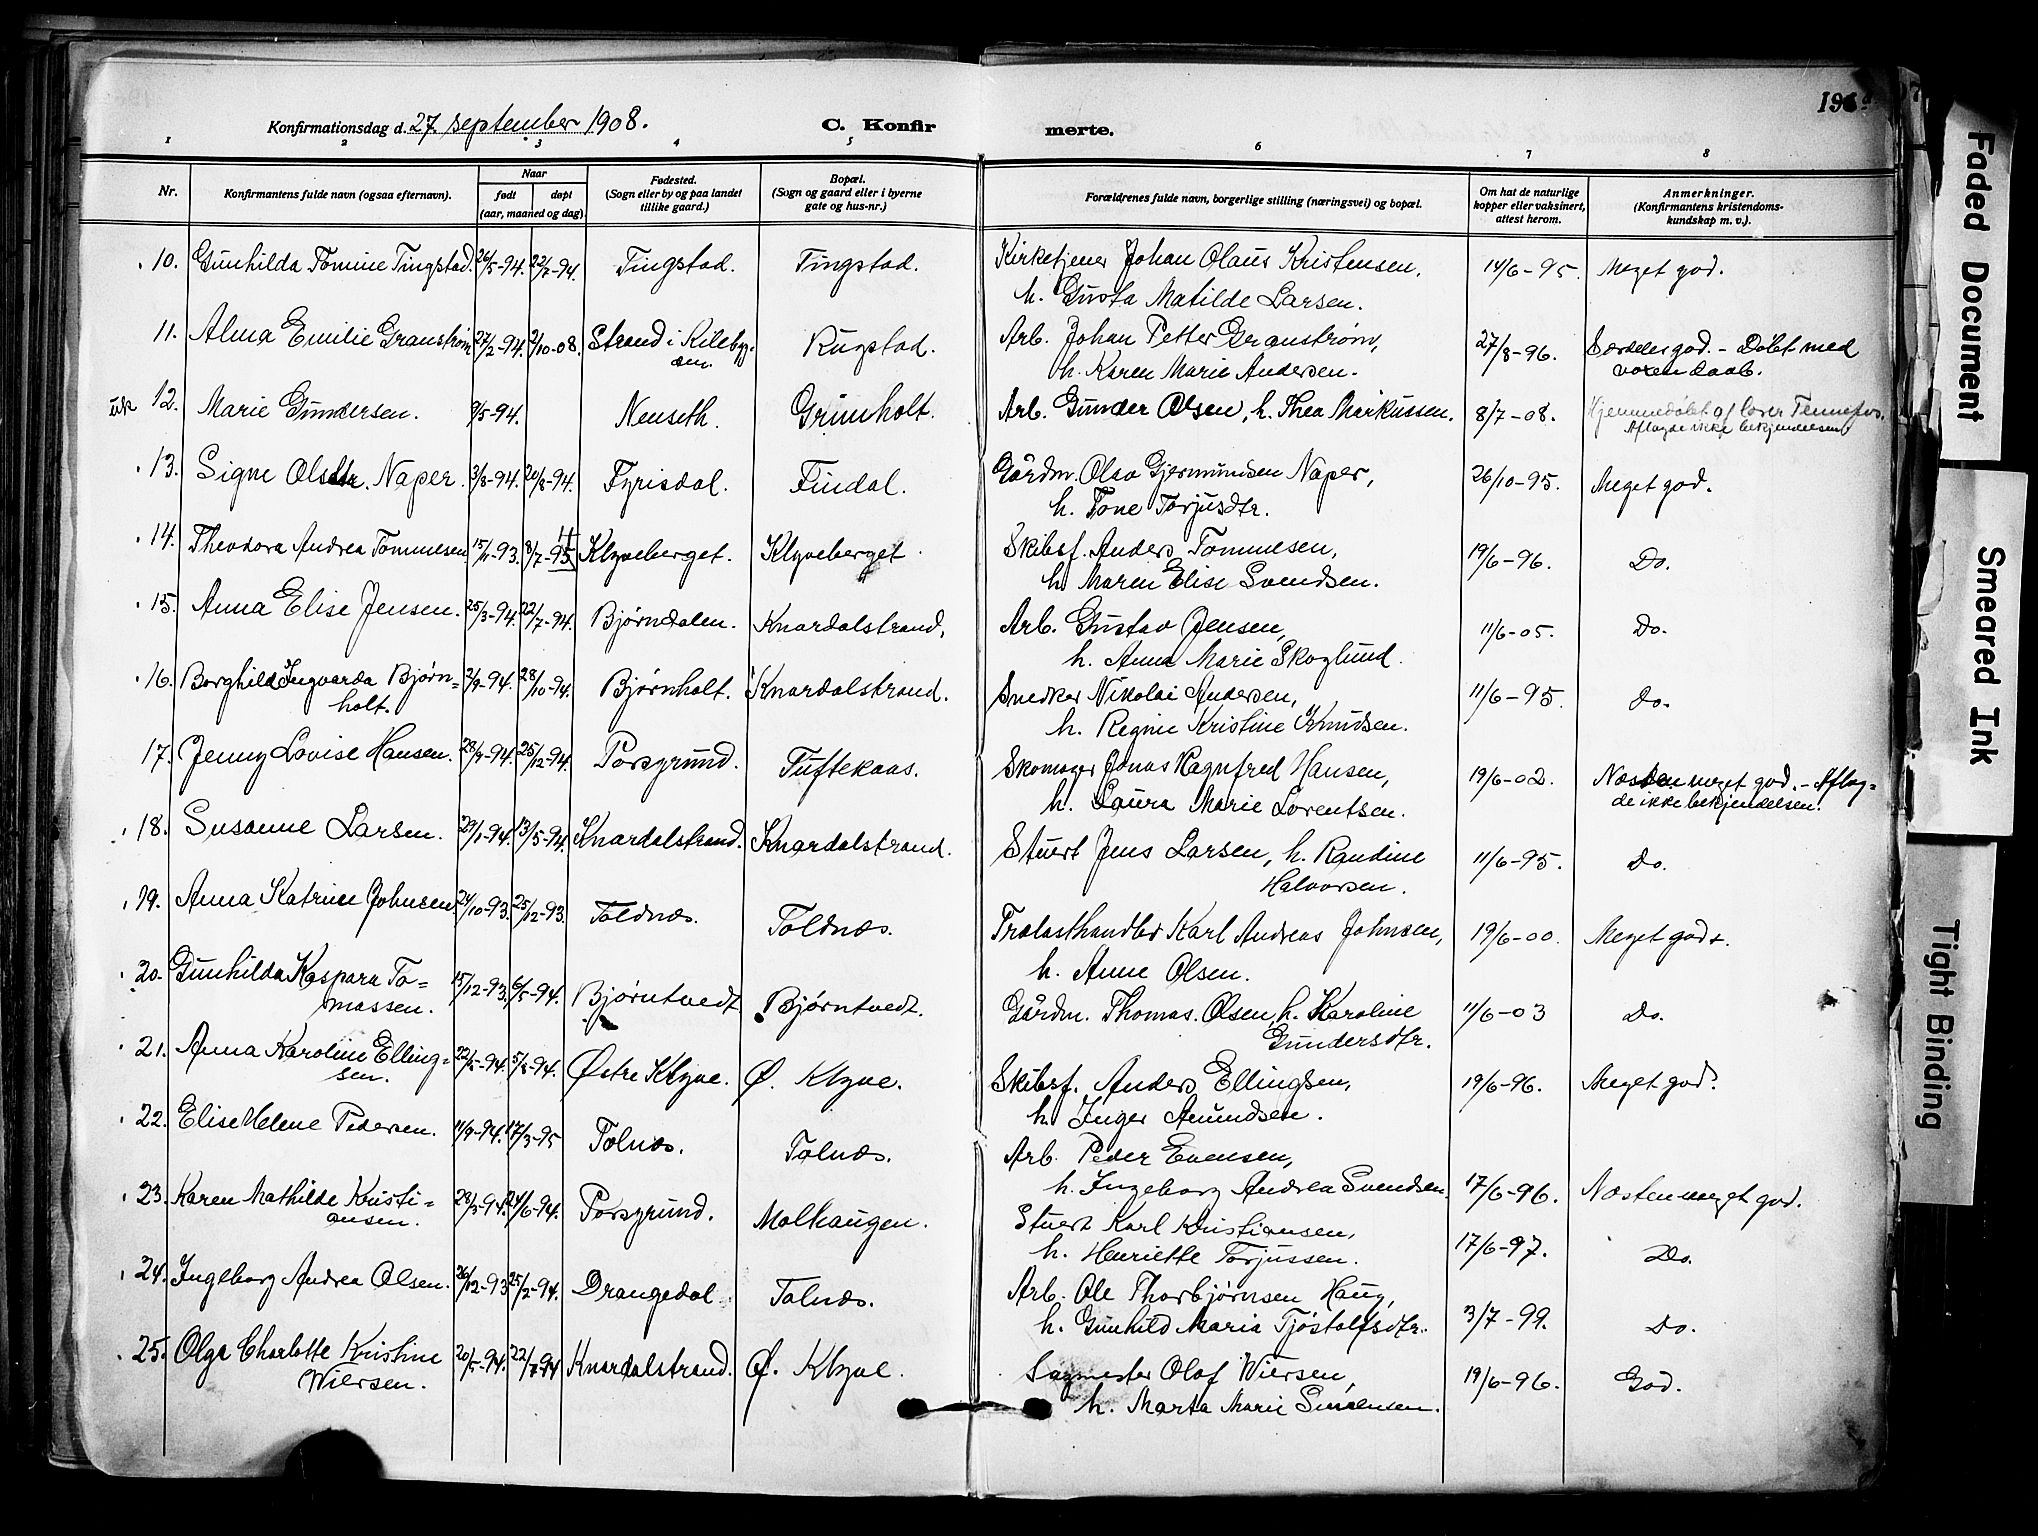 Konfirmationsdag d. 27. september 1908.
C. Konfirmerte.
1 2 3 4 5 6 7 8
Nr. Konfirmantens fulde navn (ogsaa efternavn). Naar født døpt (aar, maaned og dag) Fødested. (Sogn eller by og paa landet tillike gaard.) Bopæl. (Sogn og gaard eller i byerne gate og hus-nr.) Forældrenes fulde navn, borgerlige stilling (næringsvei) og bopæl. Om hat de naturlige kopper eller vaksinert, attest herom. Anmerkninger. (Konfirmantens kristendomskundskap m. v.).
10. Gunhilda Tomine Tingstad. 26/5-94. 22/7-94. Tingstad. Tingstad. Kirketjener Johan Olaus Kristensen, 14/6-95. Meget god.
h. Gusta Matilde Larsen.
11. Alma Emilie Granstrøm 27/2-94. 2/10-08. Strand i Kilebyg- Rugstad. Arb. Johan Petter Granstrøm, 27/8-96. Særdeles god. - Døbt med
den. h. Karen Marie Andersen. voxen daab.
uk 12. Marie Gundersen. 9/5-94. Nenseth. Grimholt. Arb. Gunder Olsen, h. Thea Markussen. 8/7-08. Hjemmedøbt af lærer Tennefos.
Aflagde ikke bekjendelsen
13. Signe Olsdtr. Naper. 3/8-94. 26/8-94. Fyrisdal. Findal. Gårdm. Olav Gjermundsen Naper, 26/10-95. Meget god.
h. Tone Torjusdtr.
14. Theodora Andrea Tommesen 15/11-93. 8/7-95 Klyveberget. Klyveberget. Skibsf. Anders Tommesen, 19/6-96. Do.
h. Maren Elise Svendsen.
15. Anna Elise Jensen. 25/3-94. 22/7-94. Bjørndalen. Knardalstrand. Arb. Gustav Jensen, 11/6-05. Do.
h. Anna Marie Skoglund.
16. Borghild Ingvarda Bjørn= 2/9-94. 28/10-94. Bjørnholt. Knardalstrand. Snedker Nikolai Andersen, 11/6-95. Do.
holt. h. Regine Kristine Knudsen.
17. Jenny Lovise Hansen. 28/9-94. 25/12-94. Porsgrund. Tuftekaas. Skomager Jonas Hagnfred Hansen, 19/6-02. Næsten meget god. - Aflag=
h. Laura Marie Lorentsen. de ikke bekjendelsen.
18. Susanne Larsen. 29/1-94. 13/5-94. Knardalstrand. Knardalstrand. Stuert Jens Larsen, h. Randine 11/6-95. Do.
Halvorsen.
19. Anna Katrine Johnsen 24/10-93. 25/12-93. Toldnæs. Toldnæs. Trælasthandler Karl Andreas Johnsen, 19/6-00. Meget god.
h. Anne Olsen.
20. Gunhilda Kaspara To= 15/12-93. 6/5-94. Bjørntvedt Bjørntvedt. Gårdm. Thomas Olsen, h. Karoline 11/6-03 Do.
massen. Gundersdtr.
21. Anna Karoline Elling= Østre Klyve. Ø. Klyve. Skibsf. Anders Ellingsen, 19/6-96. Meget god.
sen. h. Inger Amundsen.
22. Elise Helene Pedersen. 11/9-94. 17/3-95 Tolnæs. Tolnæs. Arb. Peder Evensen,
h. Ingeborg Andrea Svendsen. 17/6-96. Næsten meget god.
23. Karen Mathilde Kristi= 28/3-94. 24/6-94. Porsgrund. Molhaugen. Stuert Karl Kristiansen, 17/6-97. Do.
ansen. h. Henriette Torjussen.
24. Ingeborg Andrea Olsen. 26/12-93 25/2-94. Drangedal Tolnæs. Arb. Ole Thorbjørnsen Haug, 3/7-99. Do.
h. Gunhild Maria Tjøstolfsdtr.
25. Olga Charlotte Kristine 20/5-94. 22/7-94 Knardalstrand. Ø. Klyve. Sagmester Olaf Wiersen, 19/6-96. God.
Wiersen. h. Marta Marie Simensen.
Faded Document
Smeared Ink
Tight Binding